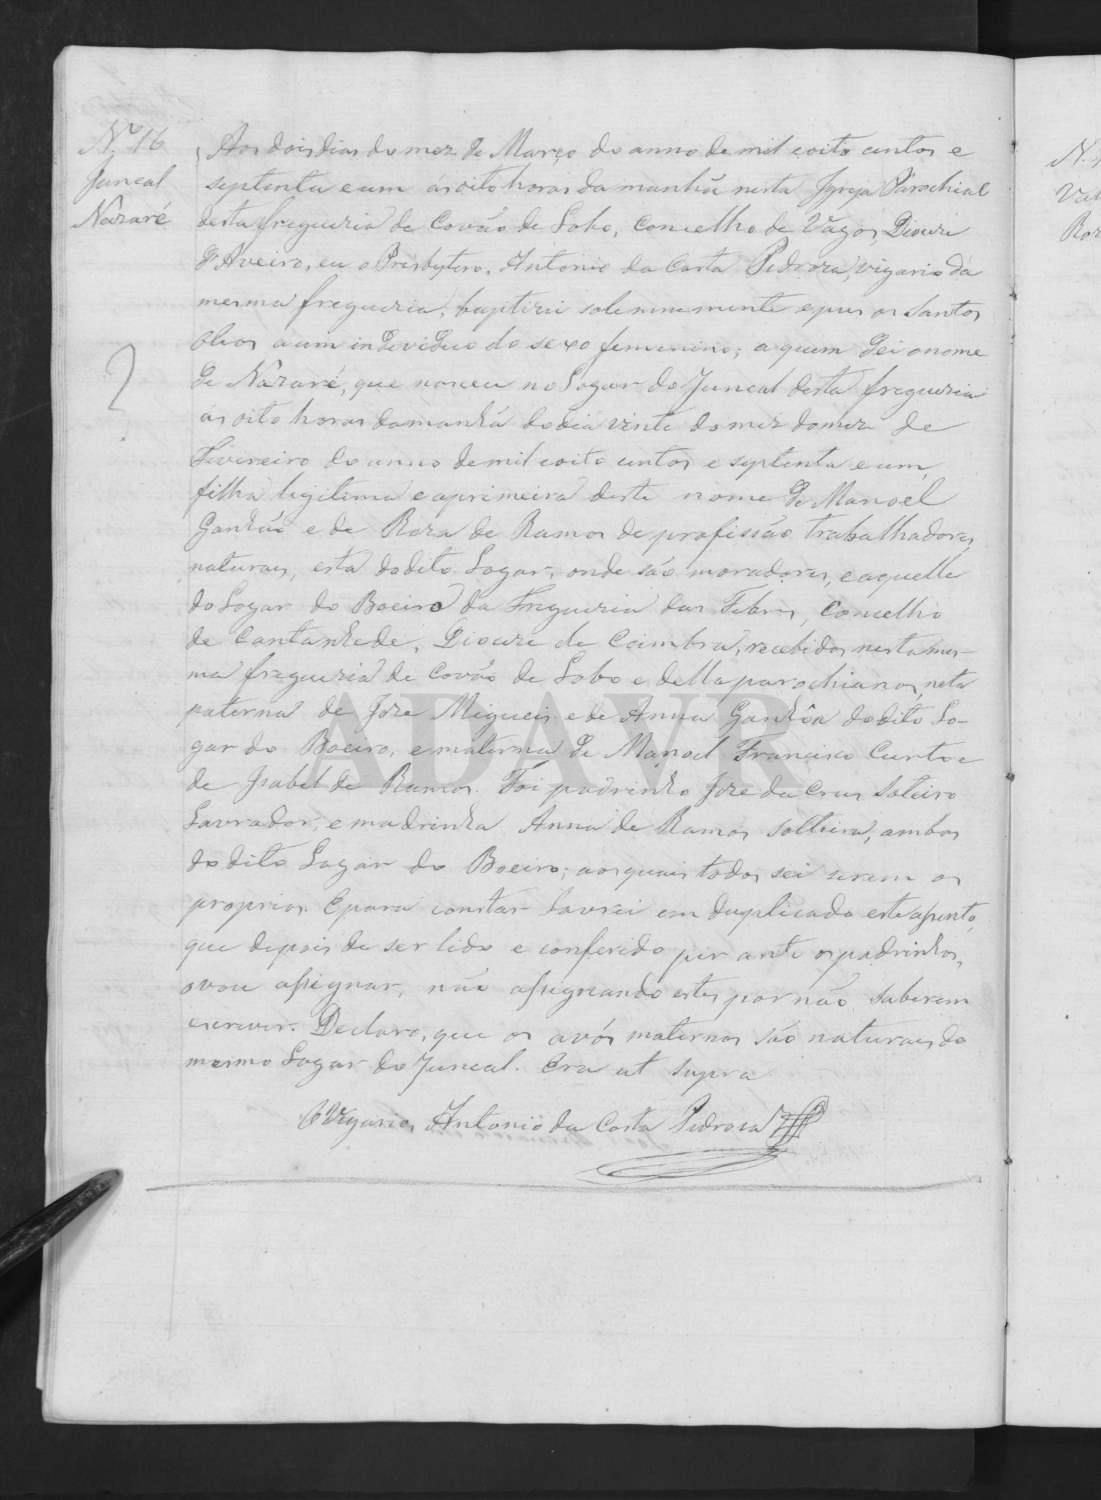 Nº 16
Juncal
Nazaré
Aos dois dias do mez de Março do anno de mil e oito centos e
septenta e um ás oito horas da manhã nesta Igreja Parochial
desta freguezia de Covão de Lobo, Concelho de Vagos, Diocese
d'Aveiro, eu o Presbytero, Antonio da Costa Pedroza, vigario da
mesma freguezia, baptizei solemnemente e pus os Santos
Oleos a um individuo do sexo femenino; a quem dei o nome
de Názaré, que nasceu no Logar do Juncal desta freguezia
ás oito horas da manhã do dia vinte do mez do mez de
Fevereiro do anno de mil e oito centos e septenta e um,
filha legitima e a primeira deste nome de Manoel
Ganhão e de Roza de Ramos de profissão trabalhadores,
naturaes, esta do dito Logar, onde são moradores, e aquelle
do Logar do Boeiro da Freguezia das Febres, Concelho
de Cantanhede, Diocese de Coimbra, recebidos nesta mes-
ma freguezia de Covão de Lobo e della parochianos, neta
paterna de Joze Migueis e de Anna Ganhôa do dito Lo-
gar do Boeiro, e materna de Manoel Francisco Curto e
de Isabel de Ramos. Foi padrinho Joze da Crus Solteiro
Lavrador, e madrinha Anna de Ramos solteira, ambos
do dito Logar do Boeiro; aos quais todos sei serem os
proprios. E para constar lavrei em duplicado este assento,
que depois de ser lido e conferido per ante os padrinhos,
o vou assignar, não assignando estes por não saberem
escrever. Declaro, que os avós maternos são naturaes do
mesmo Logar do Juncal. Era ut supra
O Vigario, Antonio da Costa Pedroza
?
ADAVR
N.
Val
Roz